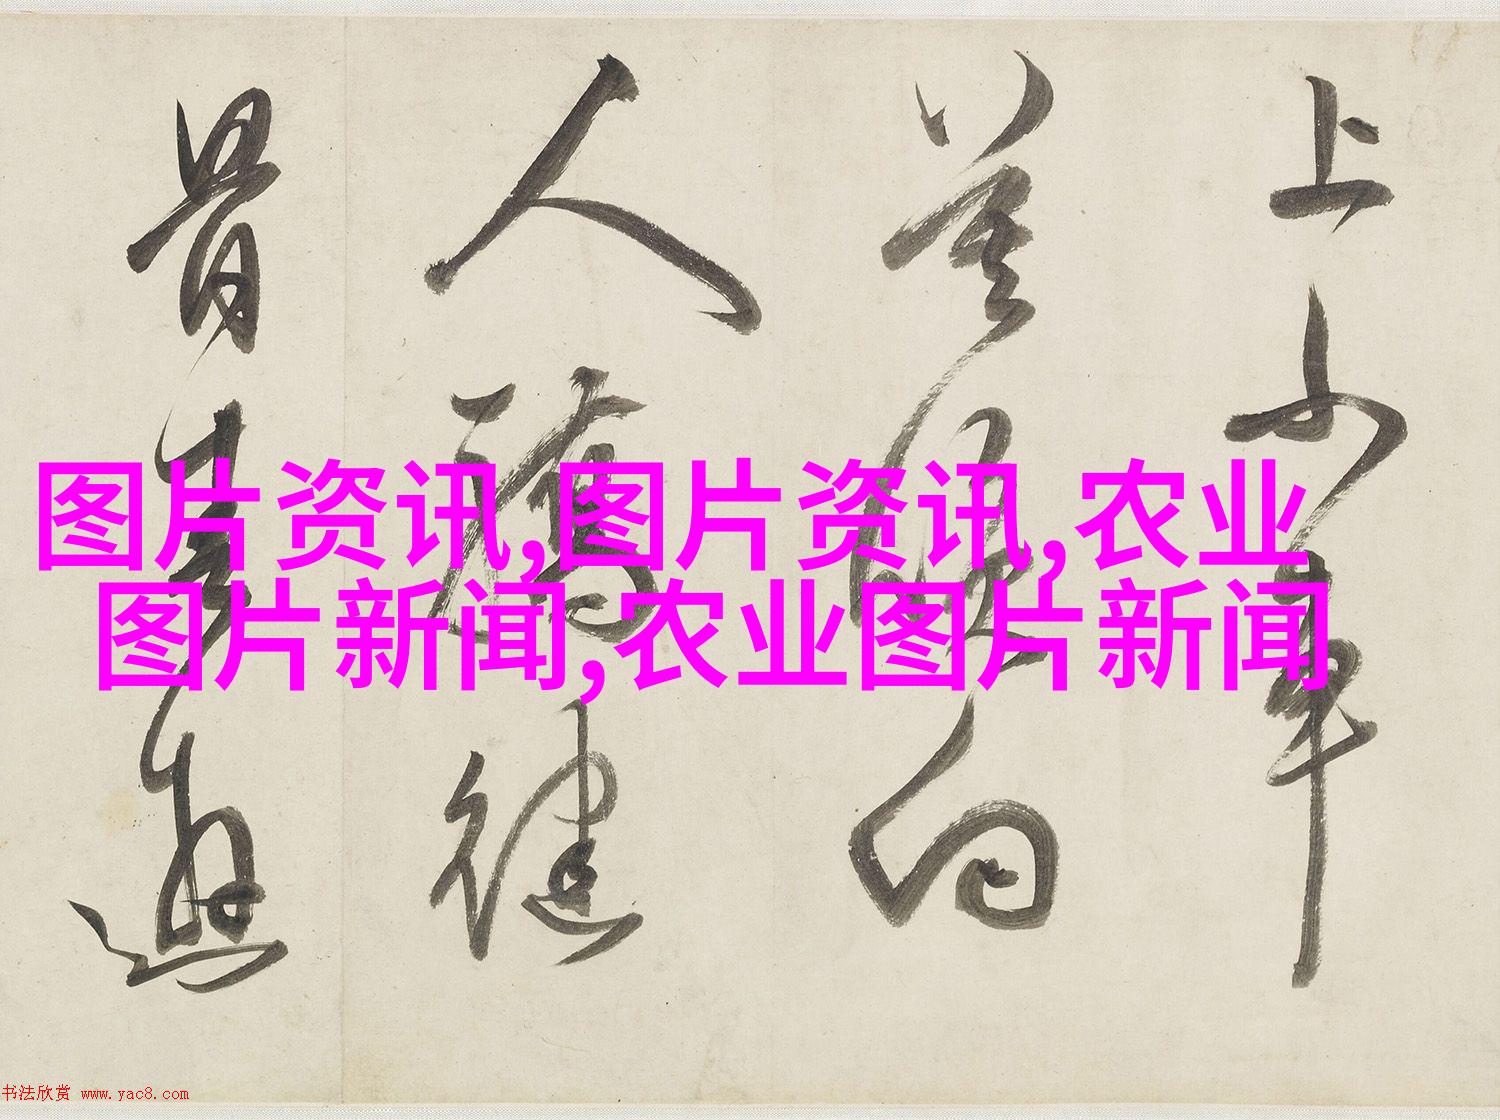 上小車
向
人健
骨遊
图片资讯,图片资讯,农业
图片新闻,农业图片新闻
书法欣赏 www.yac8.com